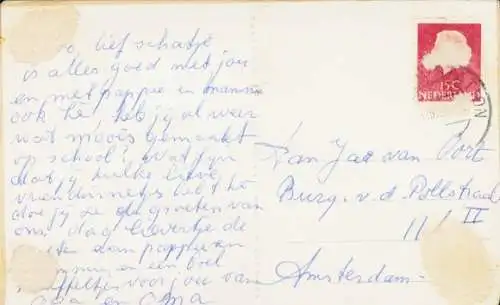 lief schatje
is alles goed met jou
en met pappie en mammie
ook hè, heb jij al weer
wat moois gemaakt
op school? Wat fijn
dat jij zulke lieve
vriendinnetjes hebt hè
doe jij ze de groeten van
ons dag lievertje de
aan pappie en
en een boel
voor jou van
en oma
15C
NEDERLAND
Aan Jac van Oort
Burg. v. d. Pollstraat
11 II
Amsterdam